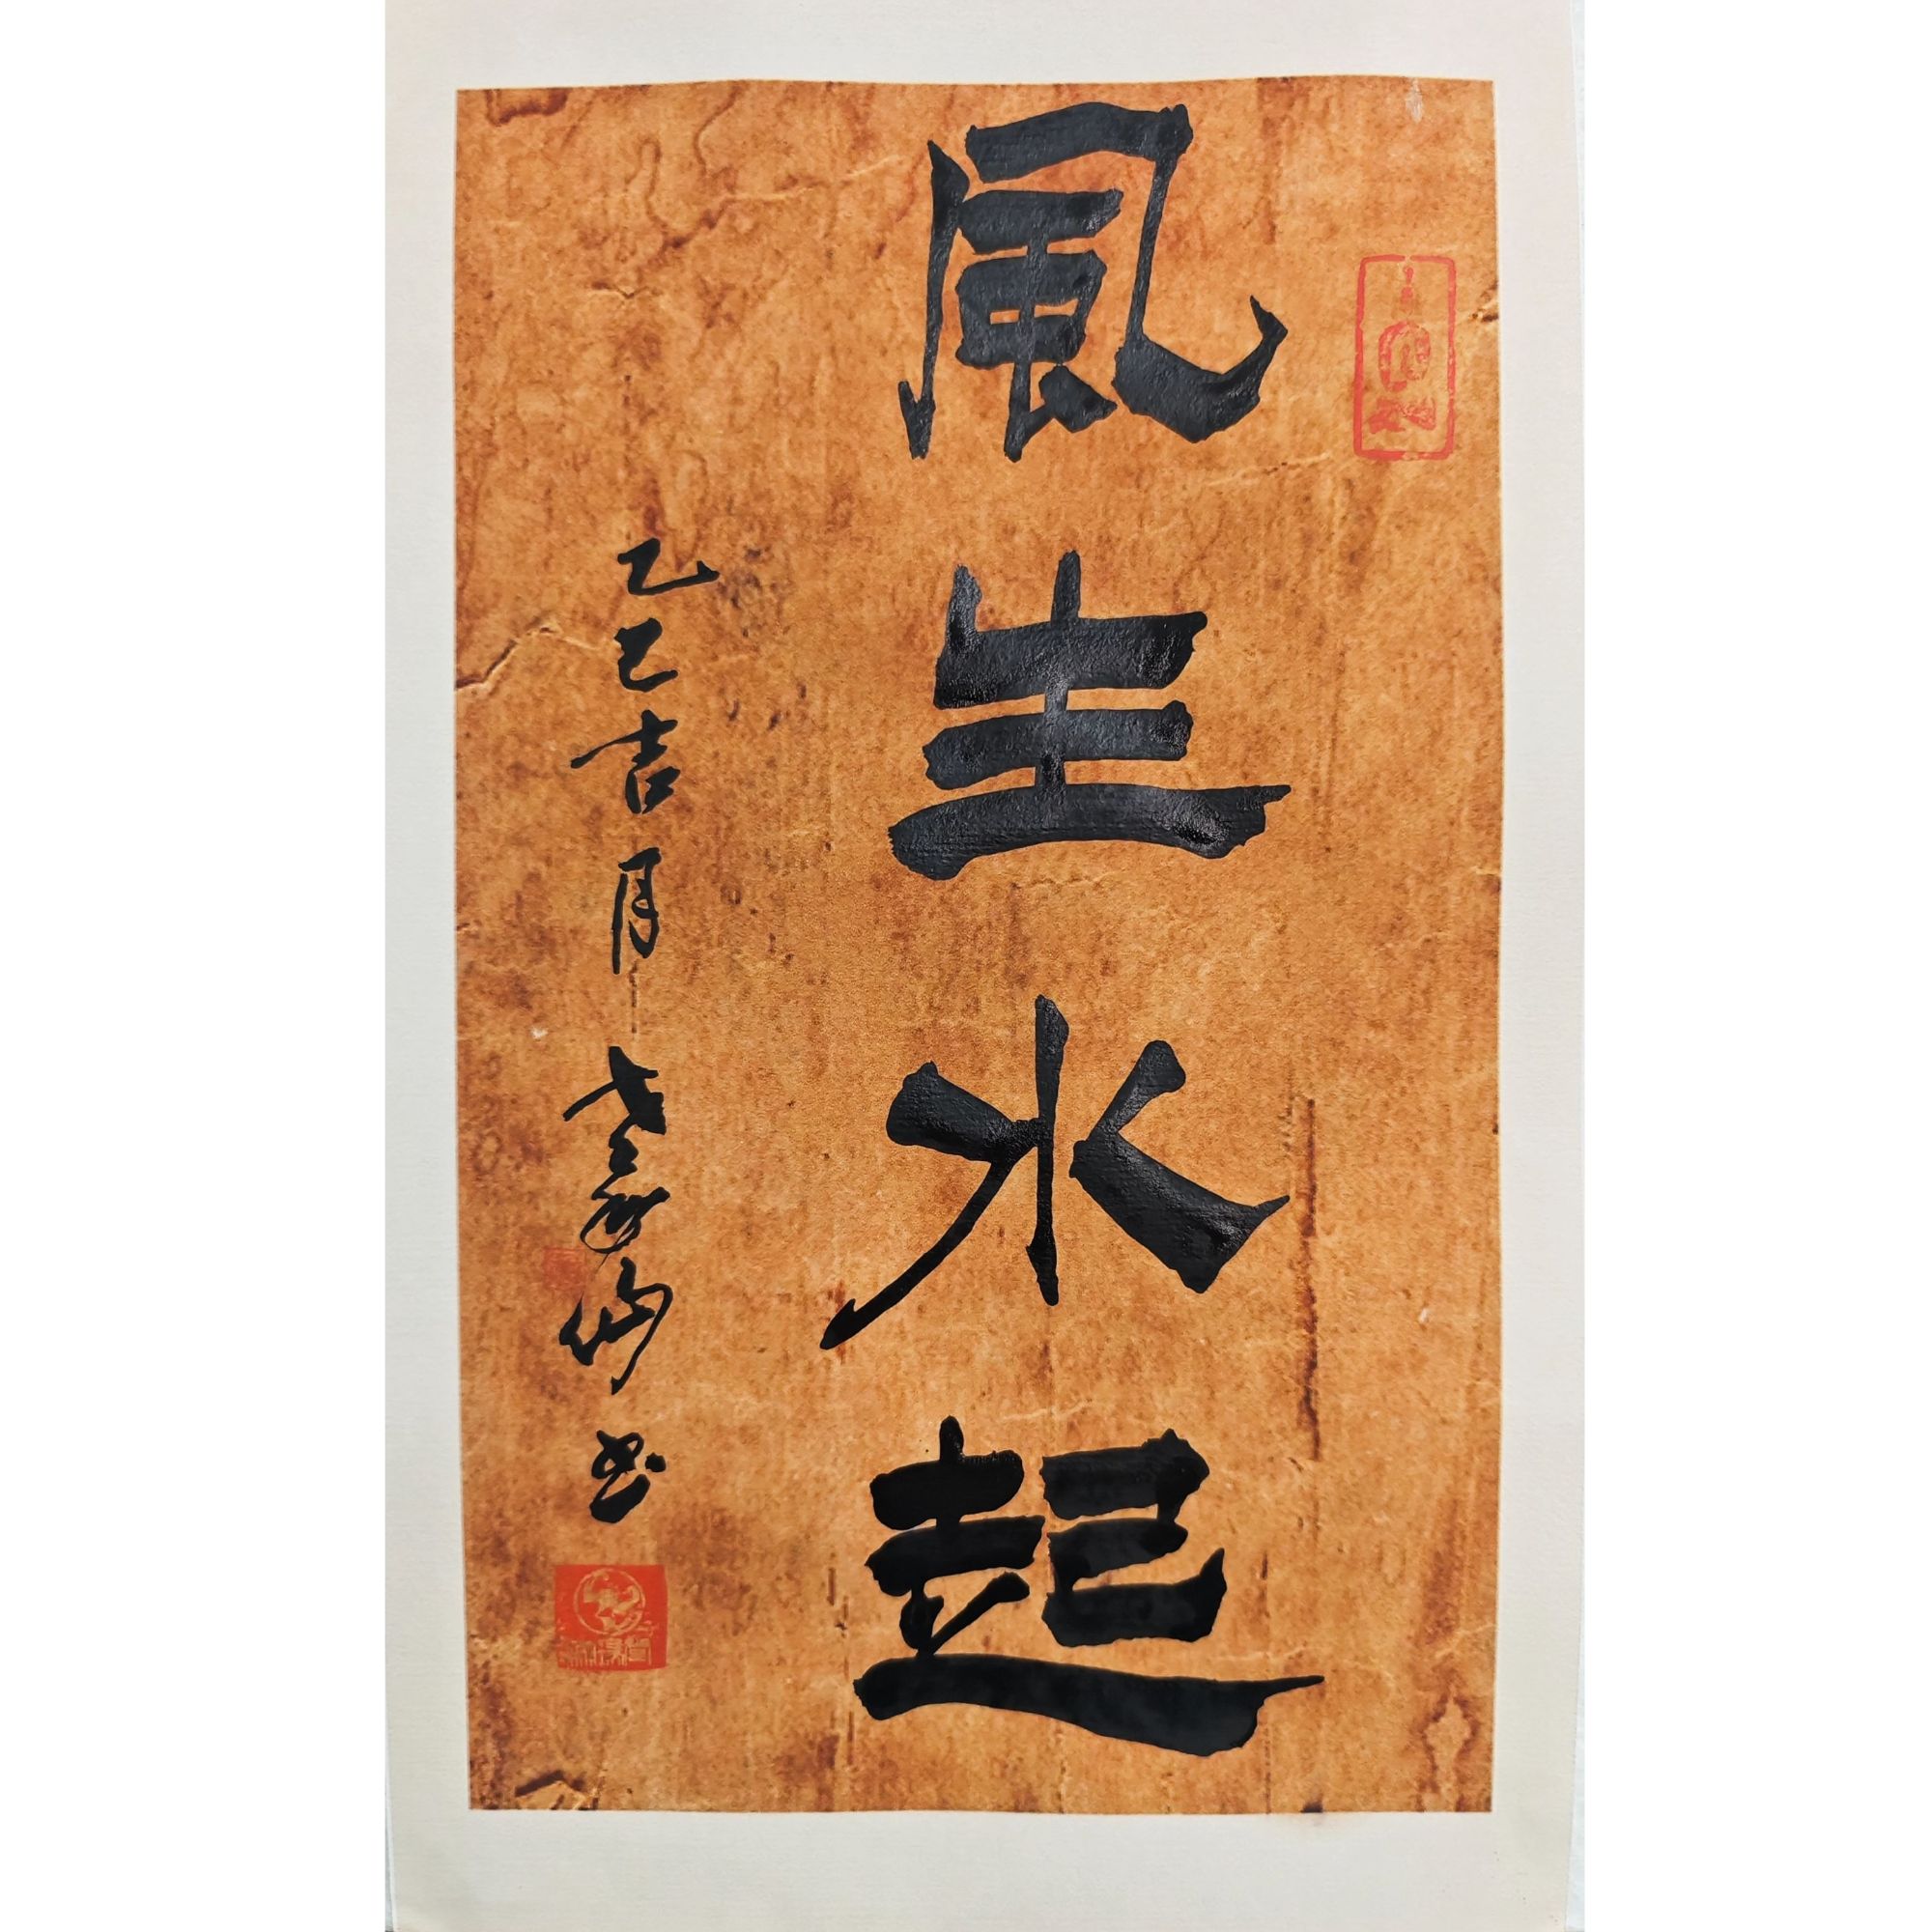 風生水起
乙巳吉月
書